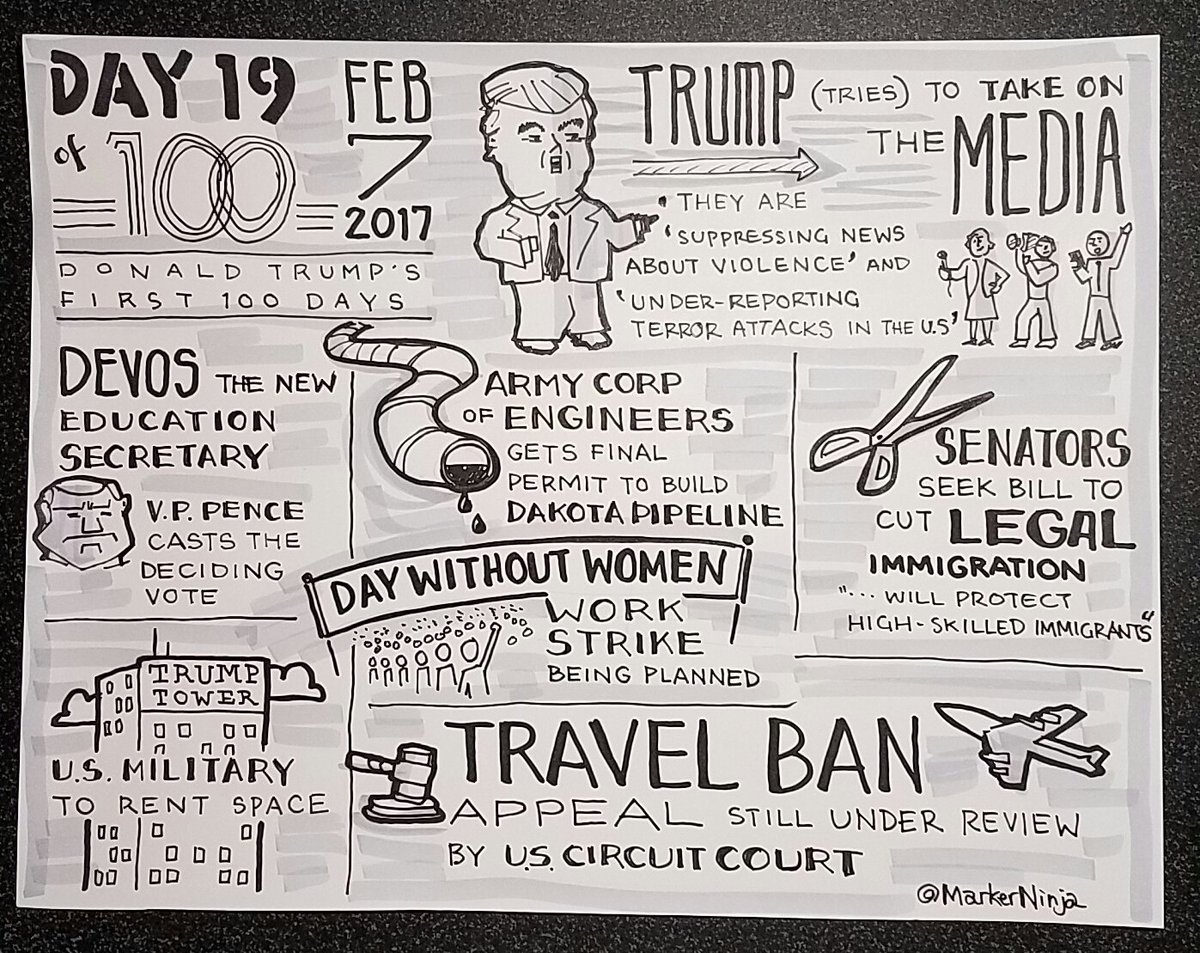 DAY 19
of 100
FEB
7
2017
DONALD TRUMP'S
FIRST 100 DAYS
TRUMP (TRIES) TO TAKE ON
THE MEDIA
• THEY ARE
'SUPPRESSING NEWS
ABOUT VIOLENCE' AND
'UNDER-REPORTING
TERROR ATTACKS IN THE U.S'
DEVOS THE NEW
EDUCATION
SECRETARY
V.P. PENCE
CASTS THE
DECIDING
VOTE
ARMY CORP
OF ENGINEERS
GETS FINAL
PERMIT TO BUILD
DAKOTA PIPELINE
SENATORS
SEEK BILL TO
CUT LEGAL
IMMIGRATION
"... WILL PROTECT
HIGH-SKILLED IMMIGRANTS"
DAY WITHOUT WOMEN
WORK
STRIKE
BEING PLANNED
TRUMP
TOWER
U.S. MILITARY
TO RENT SPACE
TRAVEL BAN
APPEAL STILL UNDER REVIEW
BY U.S. CIRCUIT COURT
@MarkerNinja